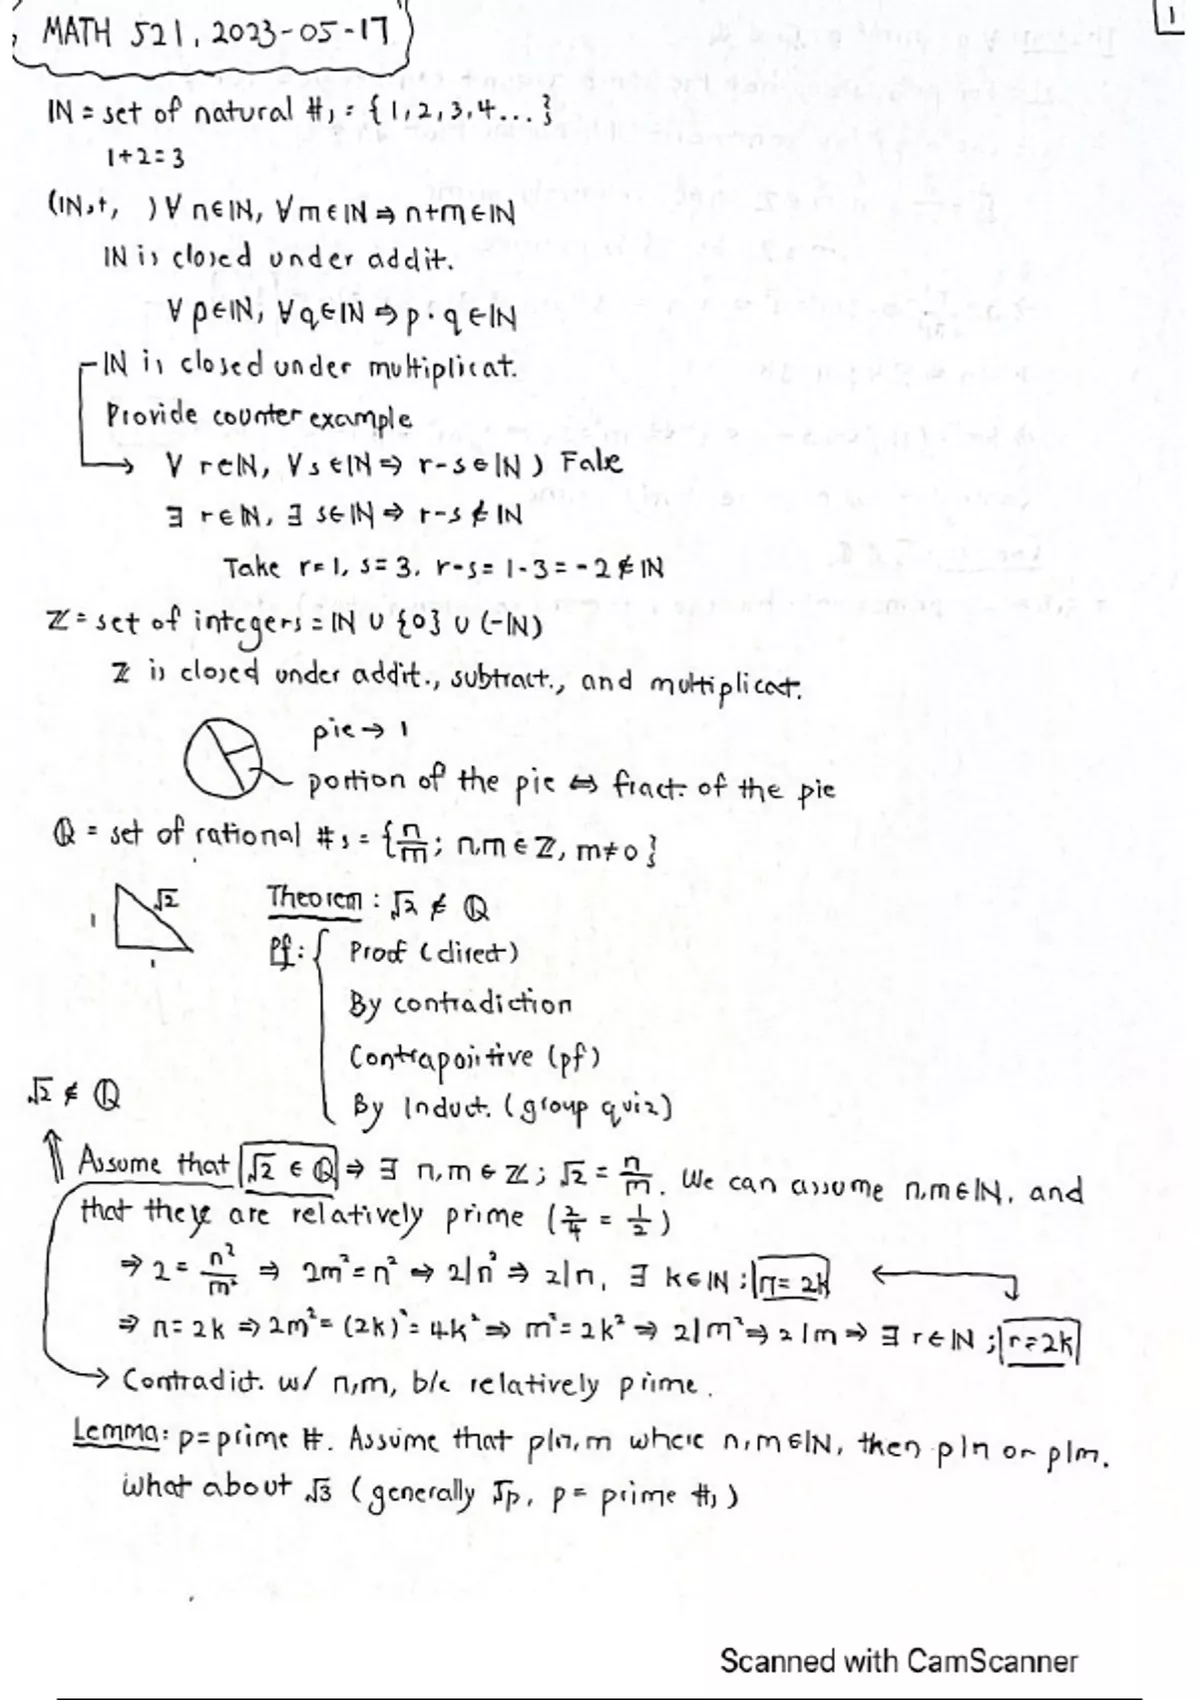 MATH 521, 2023-05-17
1
ℕ = set of natural #s = {1,2,3,4...}
1+2=3
(ℕ,+, ) ∀ n∈ℕ, ∀ m∈ℕ ⇒ n+m∈ℕ
ℕ is closed under addit.
∀ p∈ℕ, ∀ q∈ℕ ⇒ p·q∈ℕ
-ℕ is closed under multiplicat.
Provide counter example
→ ∀ r∈ℕ, ∀ s∈ℕ ⇒ r-s∈ℕ ) False
∃ r∈ℕ, ∃ s∈ℕ ⇒ r-s∉ℕ
Take r=1, s=3, r-s=1-3=-2∉ℕ
ℤ = set of integers = ℕ ∪ {0} ∪ (-ℕ)
ℤ is closed under addit., subtract., and multiplicat.
pie → 1
portion of the pie ⇔ fract. of the pie
ℚ = set of rational #s = {n/m; n,m∈ℤ, m≠0}
1 √2 1
Theorem: √2 ∉ ℚ
Pf: { Proof (direct)
By contradiction
Contrapositive (pf)
By Induct. (group quiz)
√2 ∉ ℚ
⇑ Assume that √2 ∈ ℚ ⇒ ∃ n,m∈ℤ; √2 = n/m. We can assume n,m∈ℕ, and
that they are relatively prime (2/4 = 1/2)
⇒ 2 = n²/m² ⇒ 2m²=n² ⇒ 2|n² ⇒ 2|n, ∃ k∈ℕ; n=2k ←
⇒ n=2k ⇒ 2m²=(2k)²=4k² ⇒ m²=2k² ⇒ 2|m² ⇒ 2|m ⇒ ∃ r∈ℕ; r=2k
→ Contradict. w/ n,m, b/c relatively prime.
Lemma: p=prime #. Assume that p|n,m where n,m∈ℕ, then p|n or p|m.
What about √3 (generally √p, p= prime #s)
Scanned with CamScanner